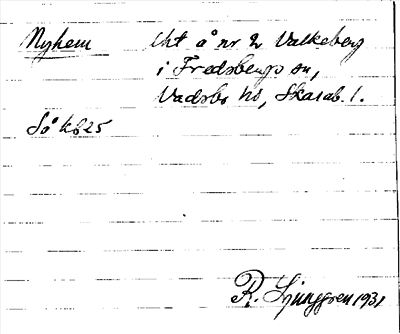 Nyhem Uht å nr 2 Valkeberg
i Fredsbergs sn,
Vadsbo hd, Skarab. l.
Så kb 25
R. Ljunggren 1931